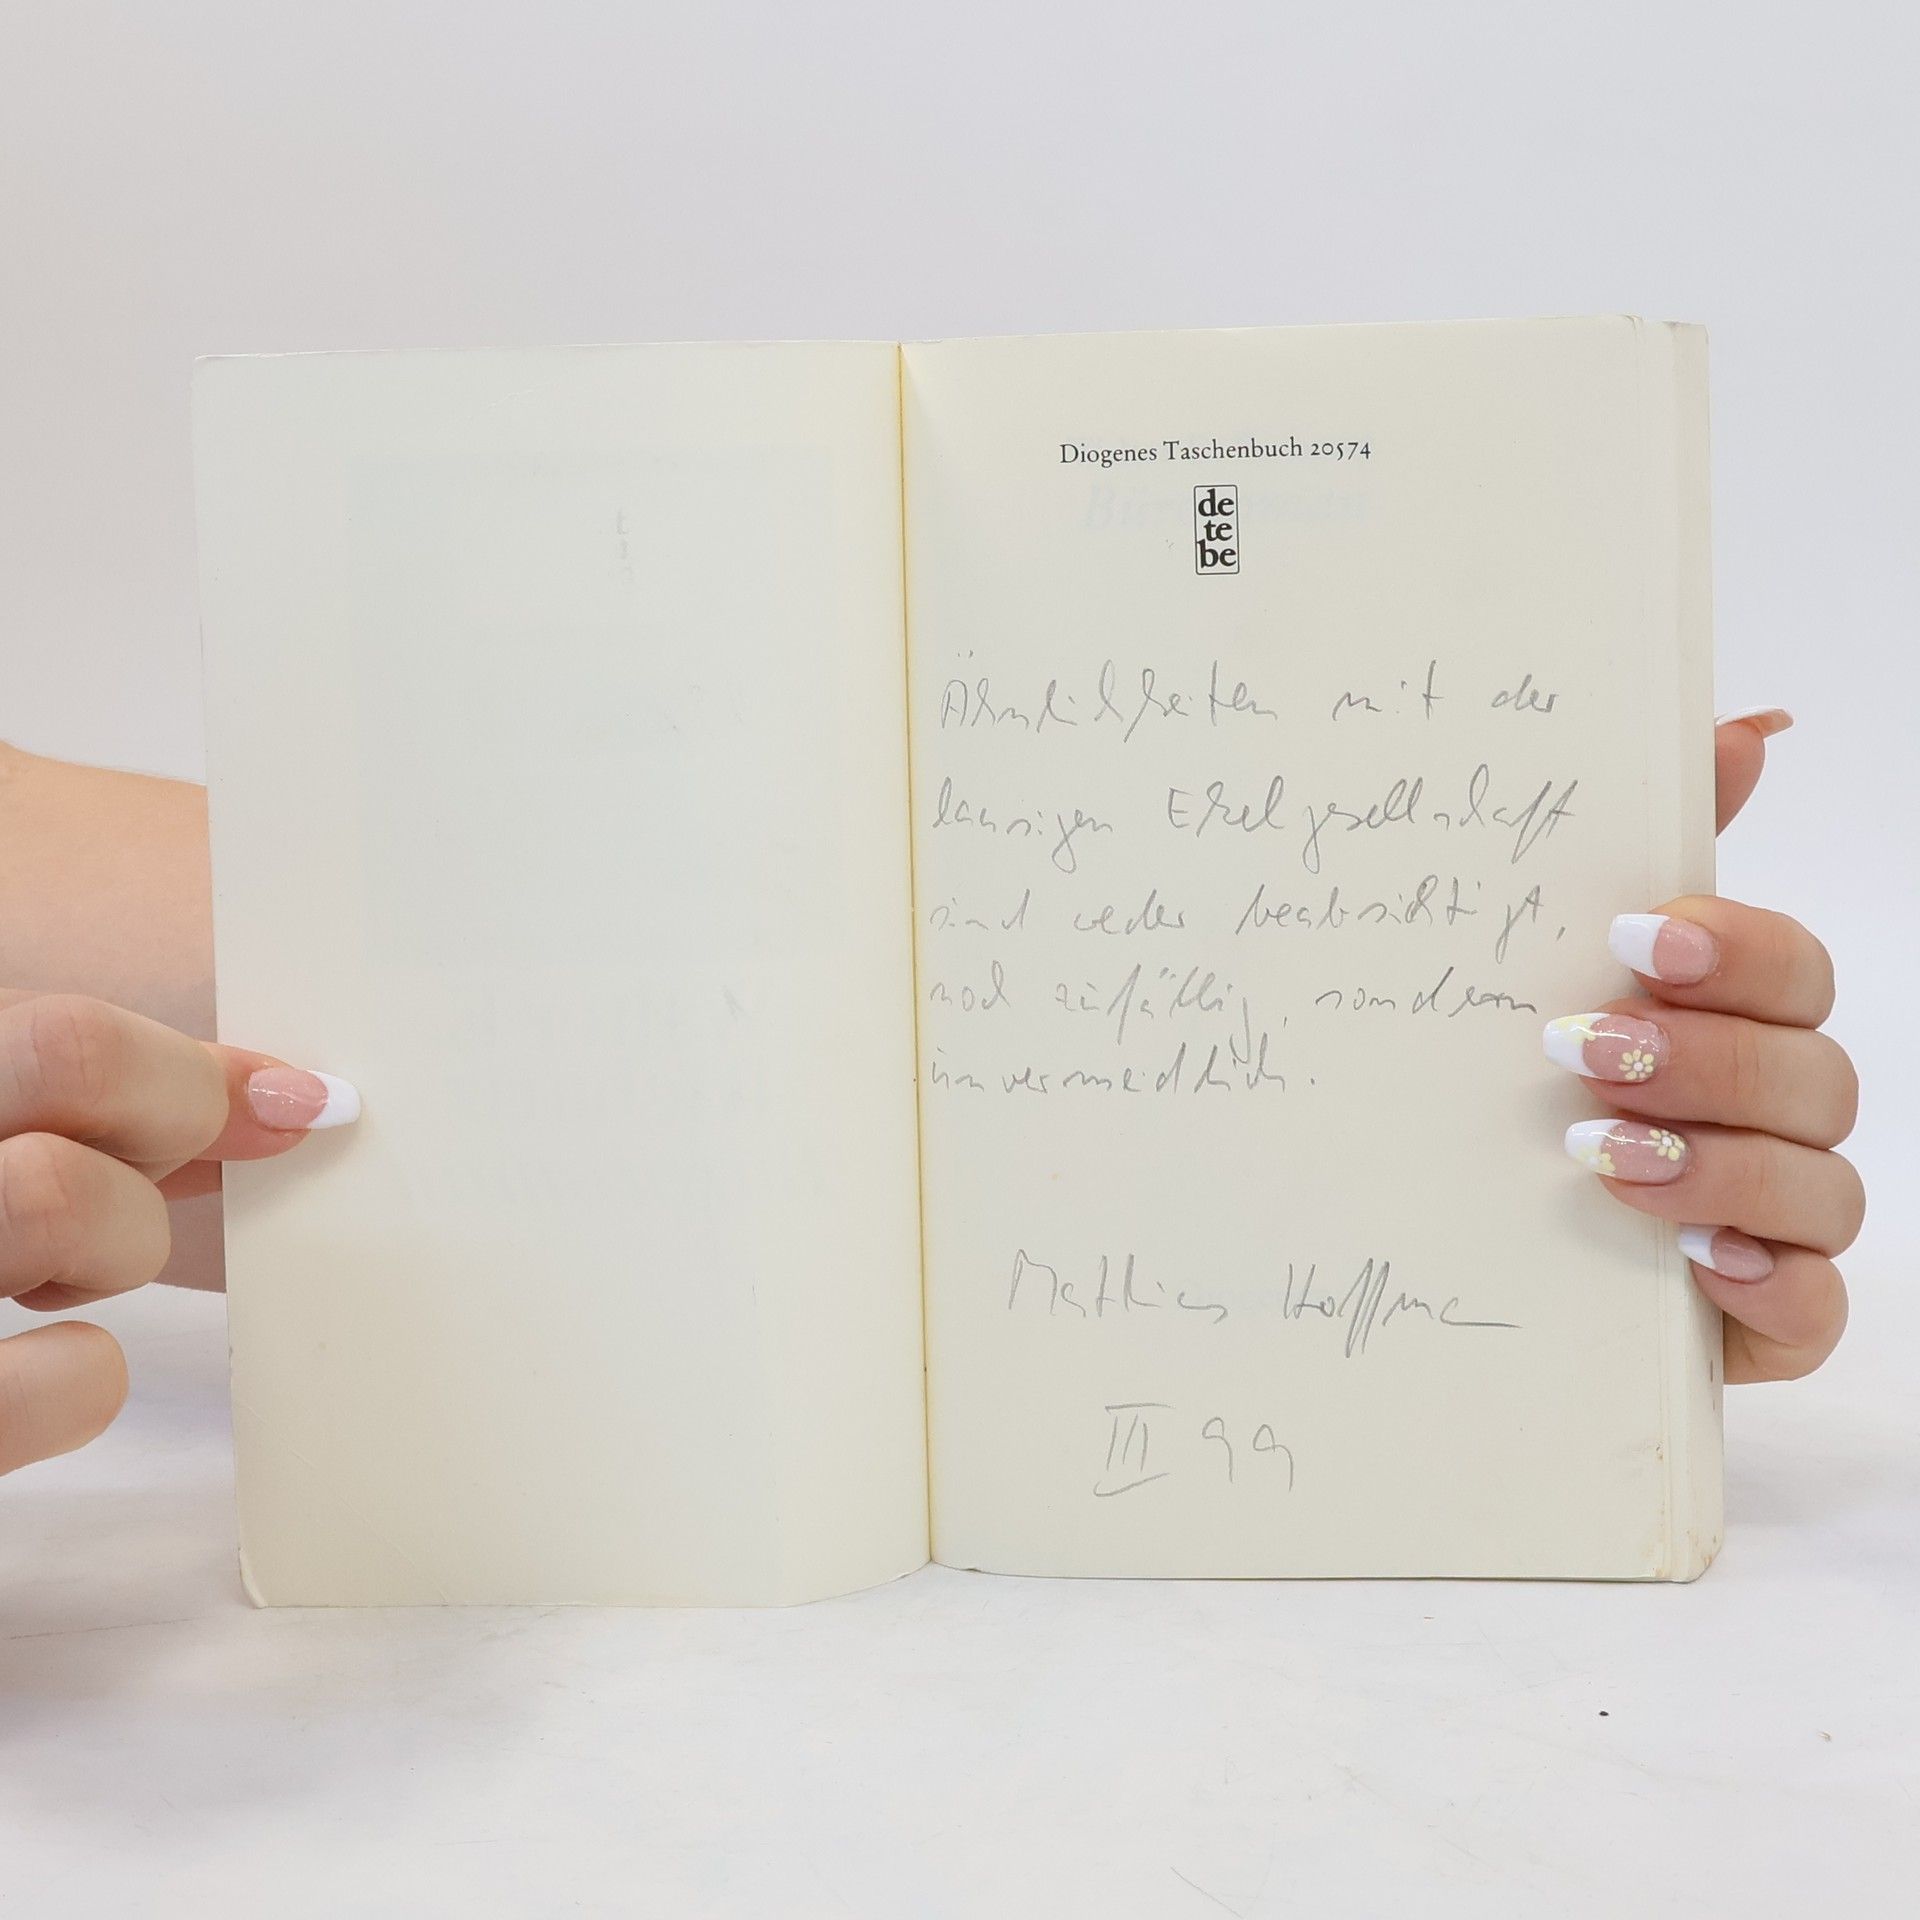 Diogenes Taschenbuch 20574
de
te
be
Ähnlichkeiten mit der
lausigen Ekelgesellschaft
sind weder beabsichtigt,
noch zufällig, sondern
unvermeidlich.
Matthias Hoffmann
III 99